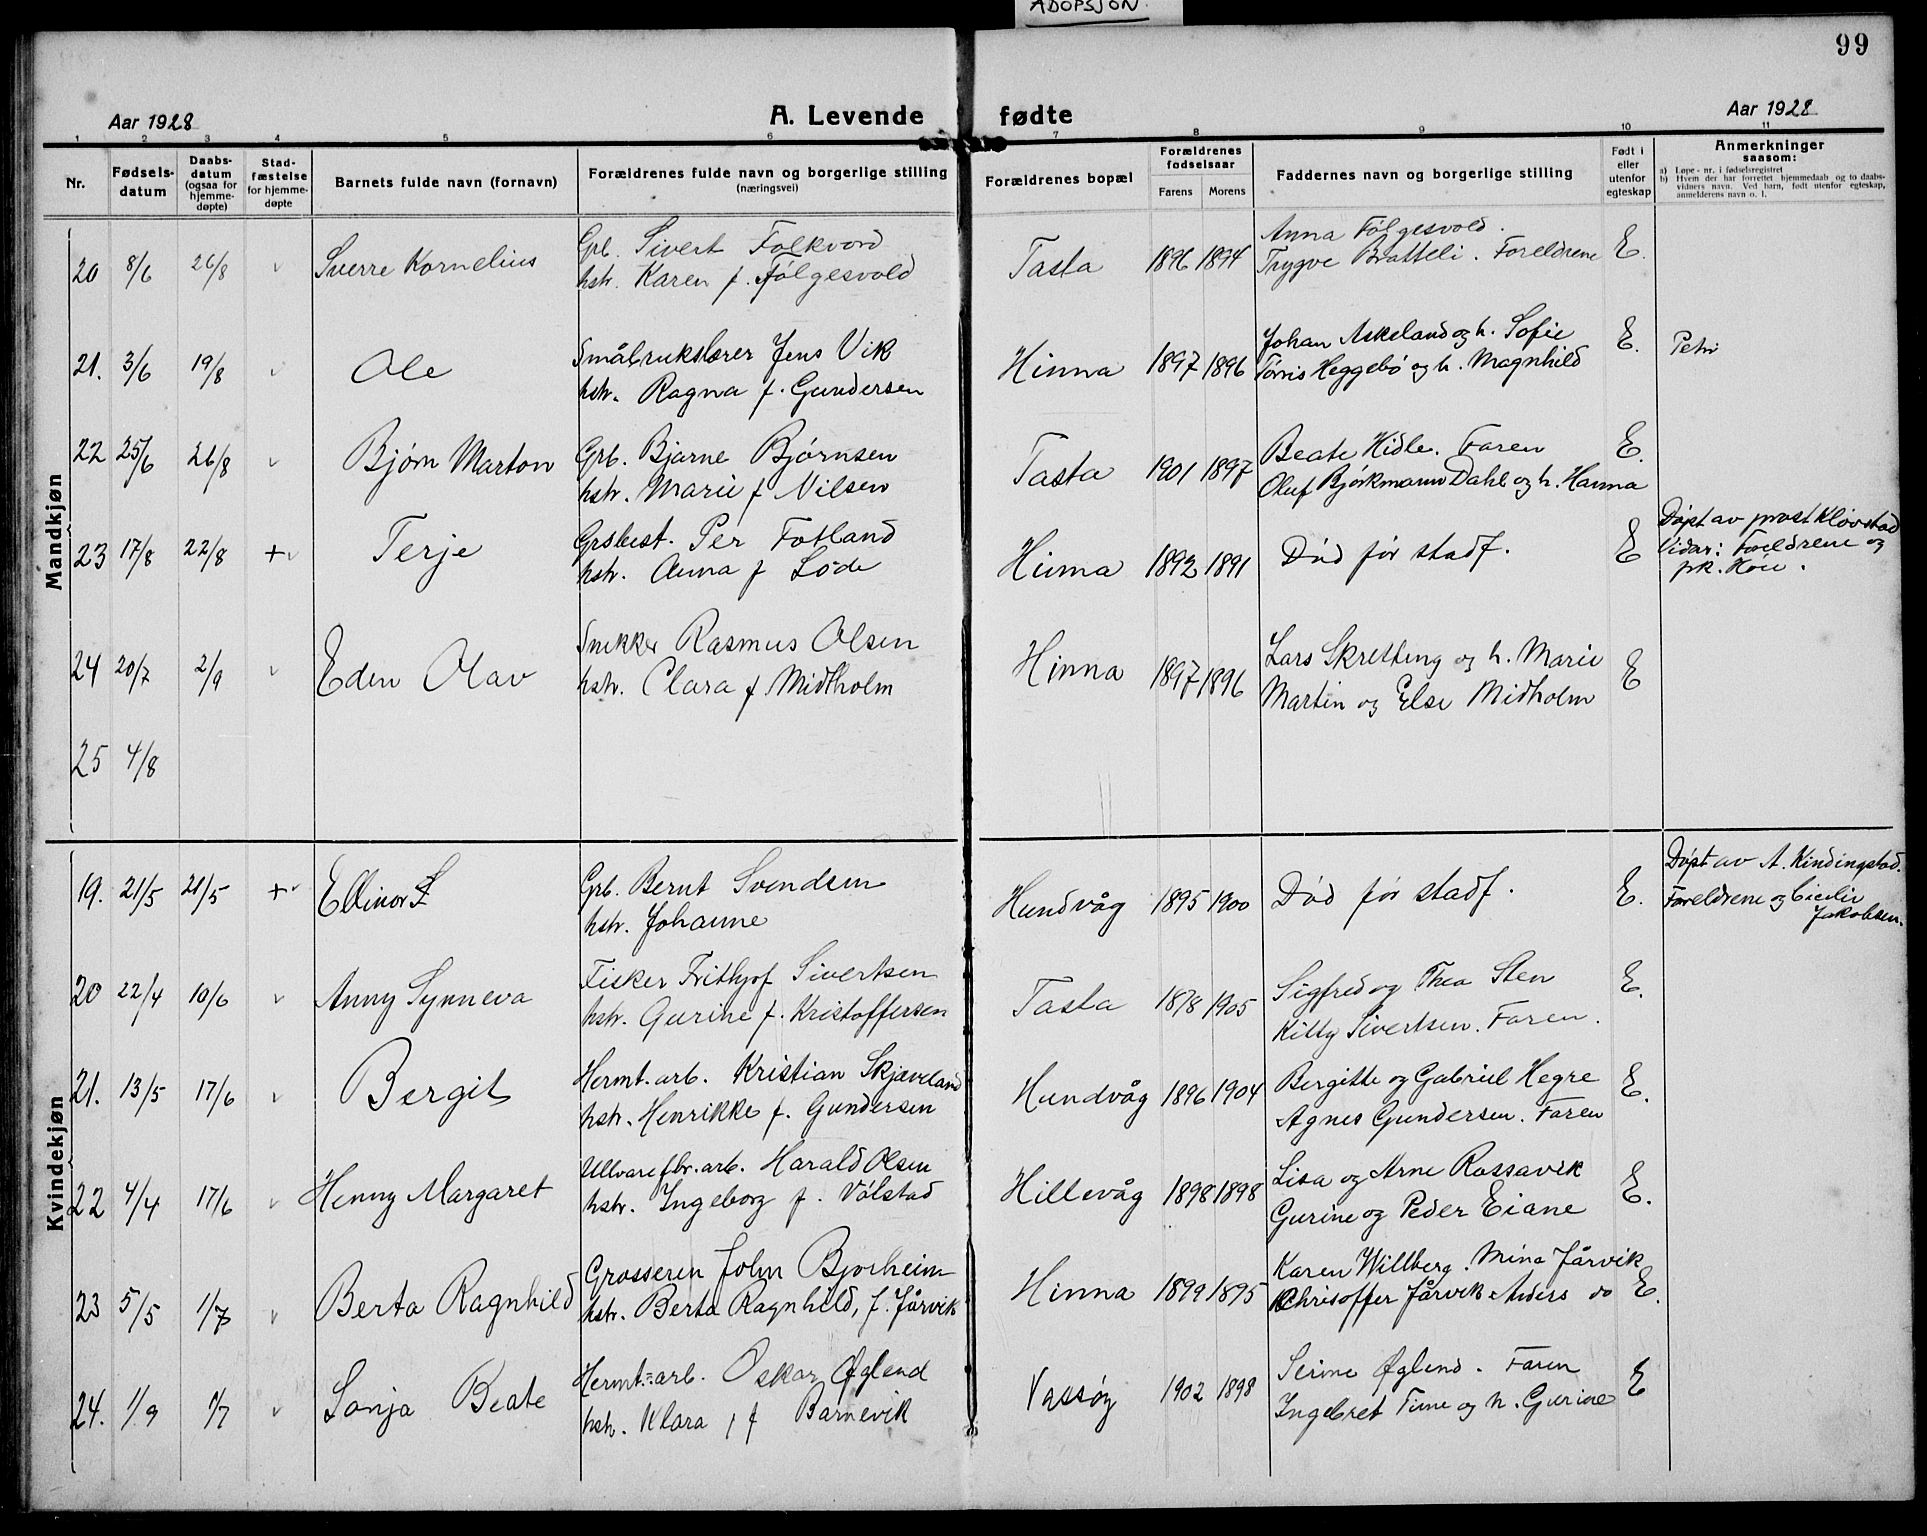 ADOPSJON
99
Aar 1928
A. Levende fødte
Aar 1928
1 2 3 4 5 6 7 8 9 10 11
Nr.
Fødsels-
datum
Daabs-
datum
(ogsaa for
hjemme-
døpte)
Stad-
fæstelse
for hjemme-
døpte
Barnets fulde navn (fornavn)
Forældrenes fulde navn og borgerlige stilling
(næringsvei)
Forældrenes bopæl
Forældrenes
fødselsaar
Farens Morens
Faddernes navn og borgerlige stilling
Født i
eller
utenfor
egteskap
Anmerkninger
saasom:
a) Løpe-nr. i fødselsregistret
b) Hvem der har forrettet hjemmedaab og to daabs-
vidners navn. Ved barn, født utenfor egteskap,
anmelderens navn o. l.
Mandkjøn
20 8/6 26/8 Sverre Kornelius
Grb. Sivert Folkvord
hstr. Karen f. Følgesvold
Tasta 1896 1894
Anna Følgesvold.
Trygve Bratteli. Foreldrene E.
21. 3/6 19/8 Ole
Småbrukslærer Jens Vik
hstr. Ragna f. Gundersen
Hinna 1897 1896
Johan Askeland og h. Sofie
Tørris Heggebø og h. Magnhild
E. Petri
22 25/6 26/8 Bjørn Marton
Grb. Bjarne Bjørnsen
hstr. Marie f Nilsen
Tasta 1901 1897
Beate Hidle. Faren
Oluf Bjørkmann Dahl og h. Hanna
E.
23 17/8 22/8 + Terje
Grsbest. Per Fotland
hstr. Anna f Løde
Hinna 1892 1891
Død før stadf. E
Døpt av prost Kløvstad
Vidner: Foreldrene og
pk. Høie.
24 20/7 2/9 Eden Olav
Snekker Rasmus Olsen
hstr. Clara f Midtholm
Hinna 1897 1896
Lars Skretting og h. Marie
Martin og Else Midtholm
E
25 4/8
Kvindekjøn
19. 21/5 21/5 + Ellinor
Grb. Bernt Svendsen
hstr. Johanne
Hundvåg 1895 1900
Død før stadf. E.
Døpt av A. Kindingstad.
Foreldrene og Cecilie
Jakobsen.
20 22/4 10/6 Anny Synneva
Fisker Frithjof Sivertsen
hstr. Gurine f. Kristoffersen
Tasta 1878 1905
Sigfred og Thea Sten
Kitty Sivertsen. Faren.
E.
21. 13/5 17/6 Bergit
Hermt. arb. Kristian Skjæveland
hstr. Henrikke f. Gundersen
Hundvåg 1896 1904
Bergitte og Gabriel Hegre
Agnes Gundersen. Faren
E.
22 4/4 17/6 Henny Margaret
Ullvarefbr. arb. Harald Olsen
hstr. Ingeborg f. Vølstad
Hillevåg 1898 1898
Lisa og Arne Rossavik
Gurine og Peder Eiane
E.
23 5/5 1/7 Berta Ragnhild
Grosseren John Bjorheim
hstr. Berta Ragnhild, f. Jårvik
Hinna 1899 1895
Karen Willberg. Mina Jårvik
Chrisoffer Jårvik Anders do
E.
24. 1/9 1/7 Sonja Beate
Hermt. arb. Oskar Øglend
hstr. Klara, f Barnevik
Vassøy 1902 1898
Serine Øglend. Faren
Ingebret Time og h. Gurine
E